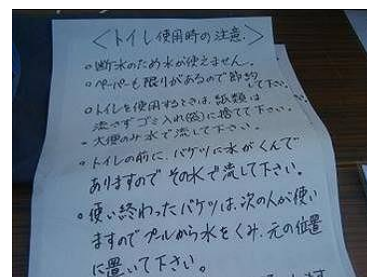 ＜トイレ使用時の注意.＞
○断水のため水が使えません。
○ペーパーも限りがあるので節約
して下さい。
○トイレを使用するときは、紙類は
流さずゴミ入れ(袋)に捨てて下さい。
・大便のみ水で流して下さい。
・トイレの前に、バケツに水がくんで
ありますので その水で流して下さい。
・使い終わったバケツは、次の人が使い
ますのでプールから水をくみ、元の位置
に置いて下さい。